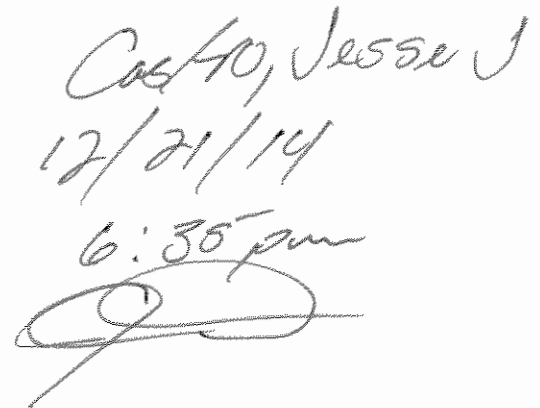 Castro, Jesse J
12/21/14
6:35pm